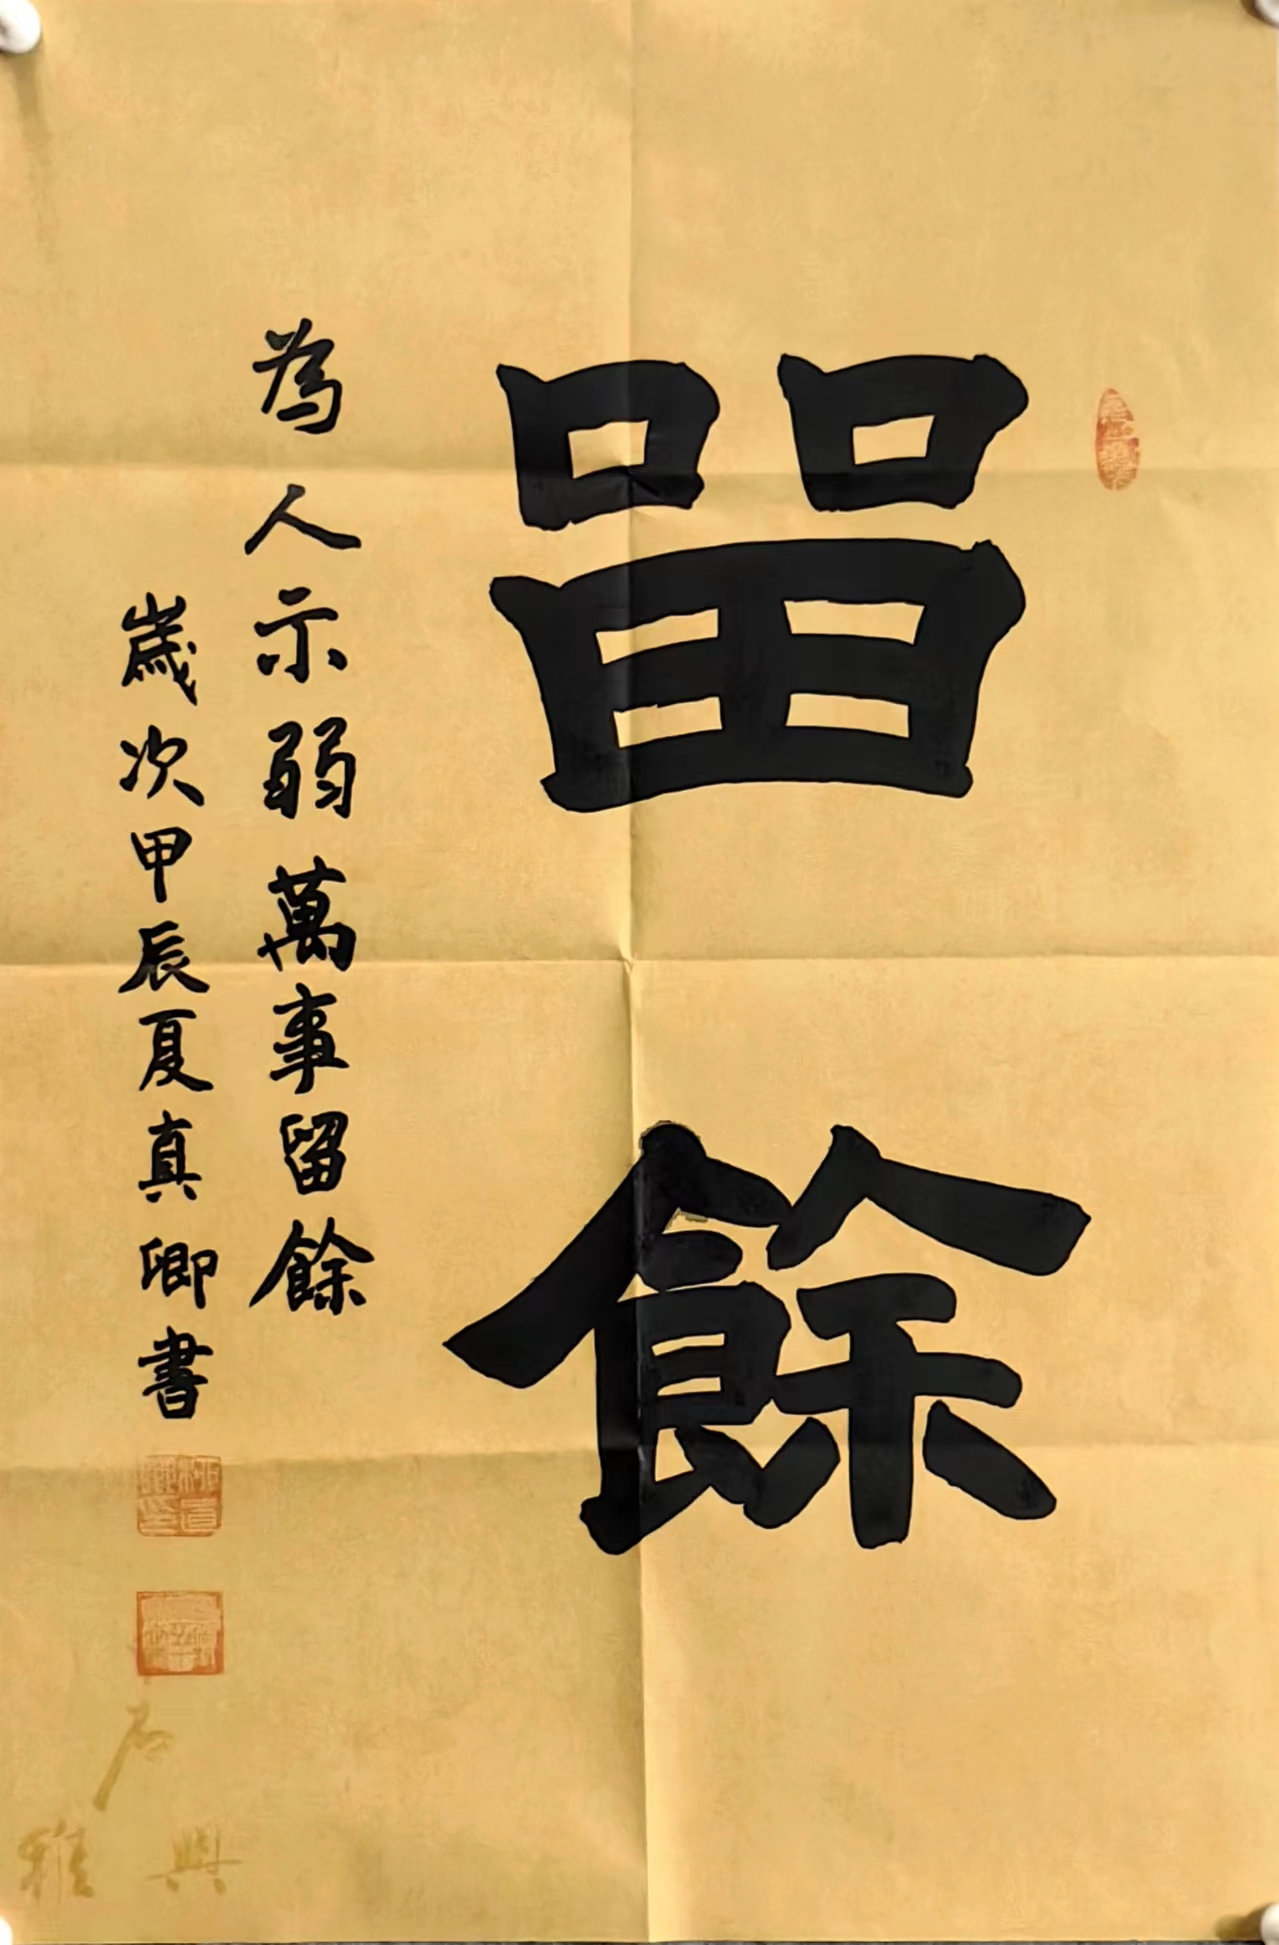 畱餘
為人示弱萬事留餘
歲次甲辰夏真卿書